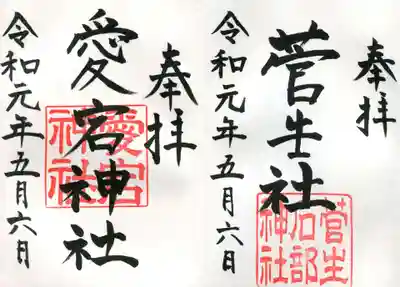 奉拝
菅生社
菅生
石部
神社
令和元年五月六日
奉拝
愛宕神社
愛宕
神社
令和元年五月六日